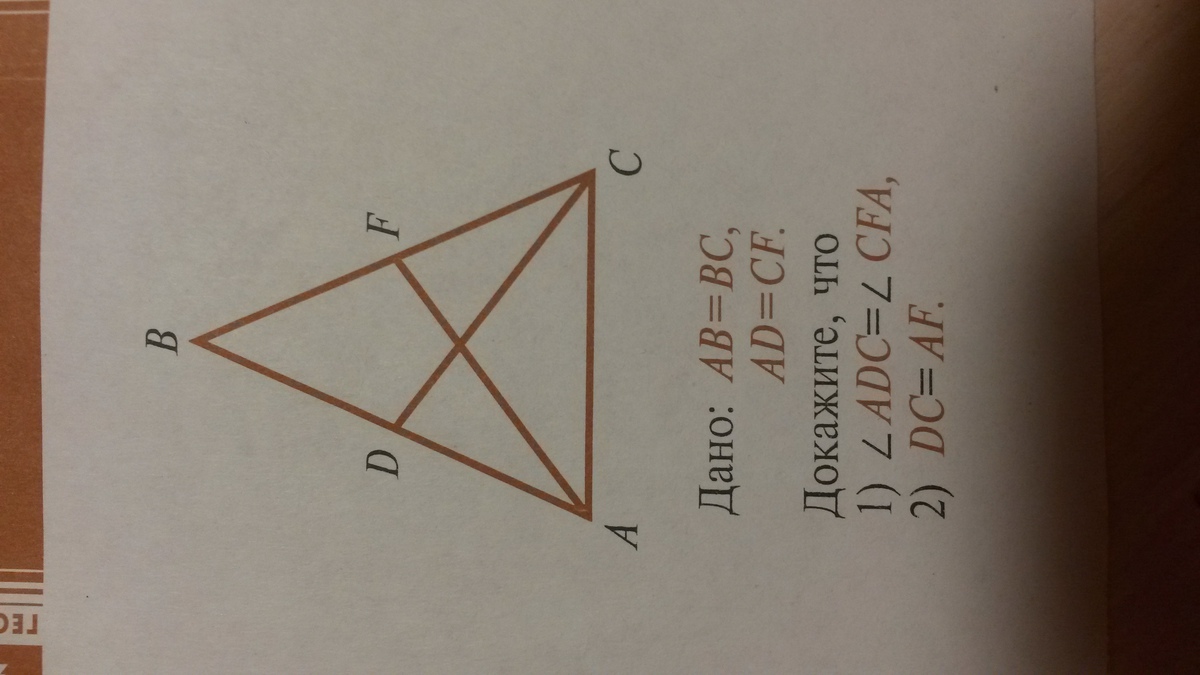 ГЕО
B
D
F
A
C
Дано: AB=BC,
AD=CF.
Докажите, что
1) ∠ADC=∠CFA,
2) DC=AF.